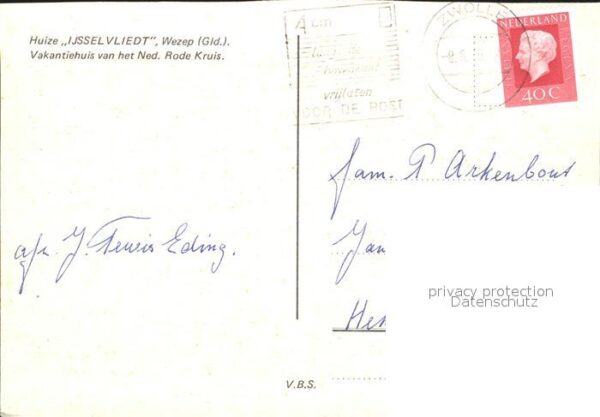 Huize „IJSSELVLIEDT”, Wezep (Gld.).
Vakantiehuis van het Ned. Rode Kruis.
4 cm
vrijlaten
VOOR DE POST
ZWOLLE
NEDERLAND
40 C
fam. P Arkenbout
Jan
afz. J. Teuvis Eding.
privacy protection
Datenschutz
V.B.S.